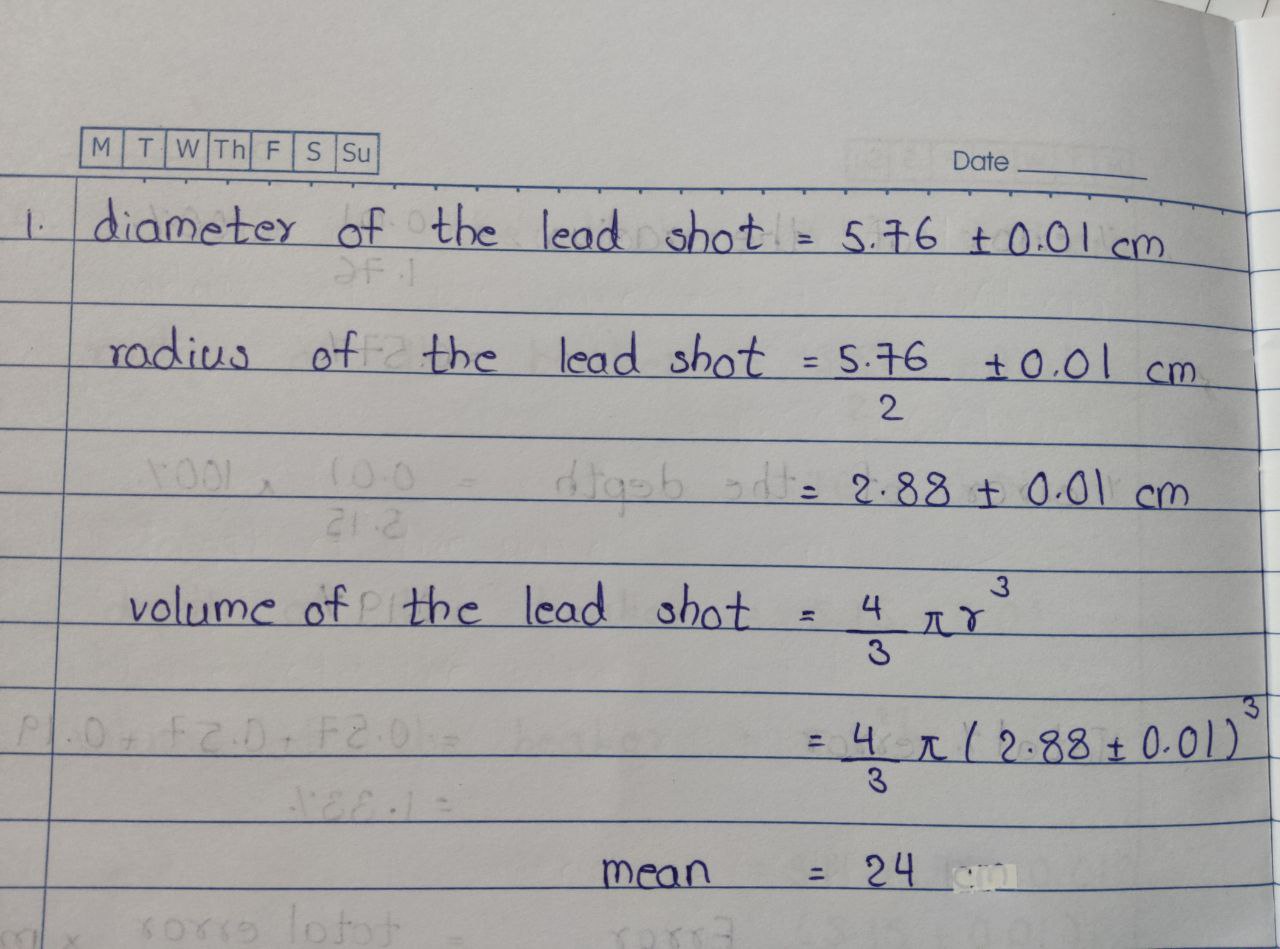 M T W Th F S Su
Date
1. diameter of the lead shot = 5.76 ± 0.01 cm
radius of the lead shot = 5.76/2 ± 0.01 cm
= 2.88 ± 0.01 cm
volume of the lead shot = 4/3 πr³
= 4/3 π (2.88 ± 0.01)³
mean = 24 cm